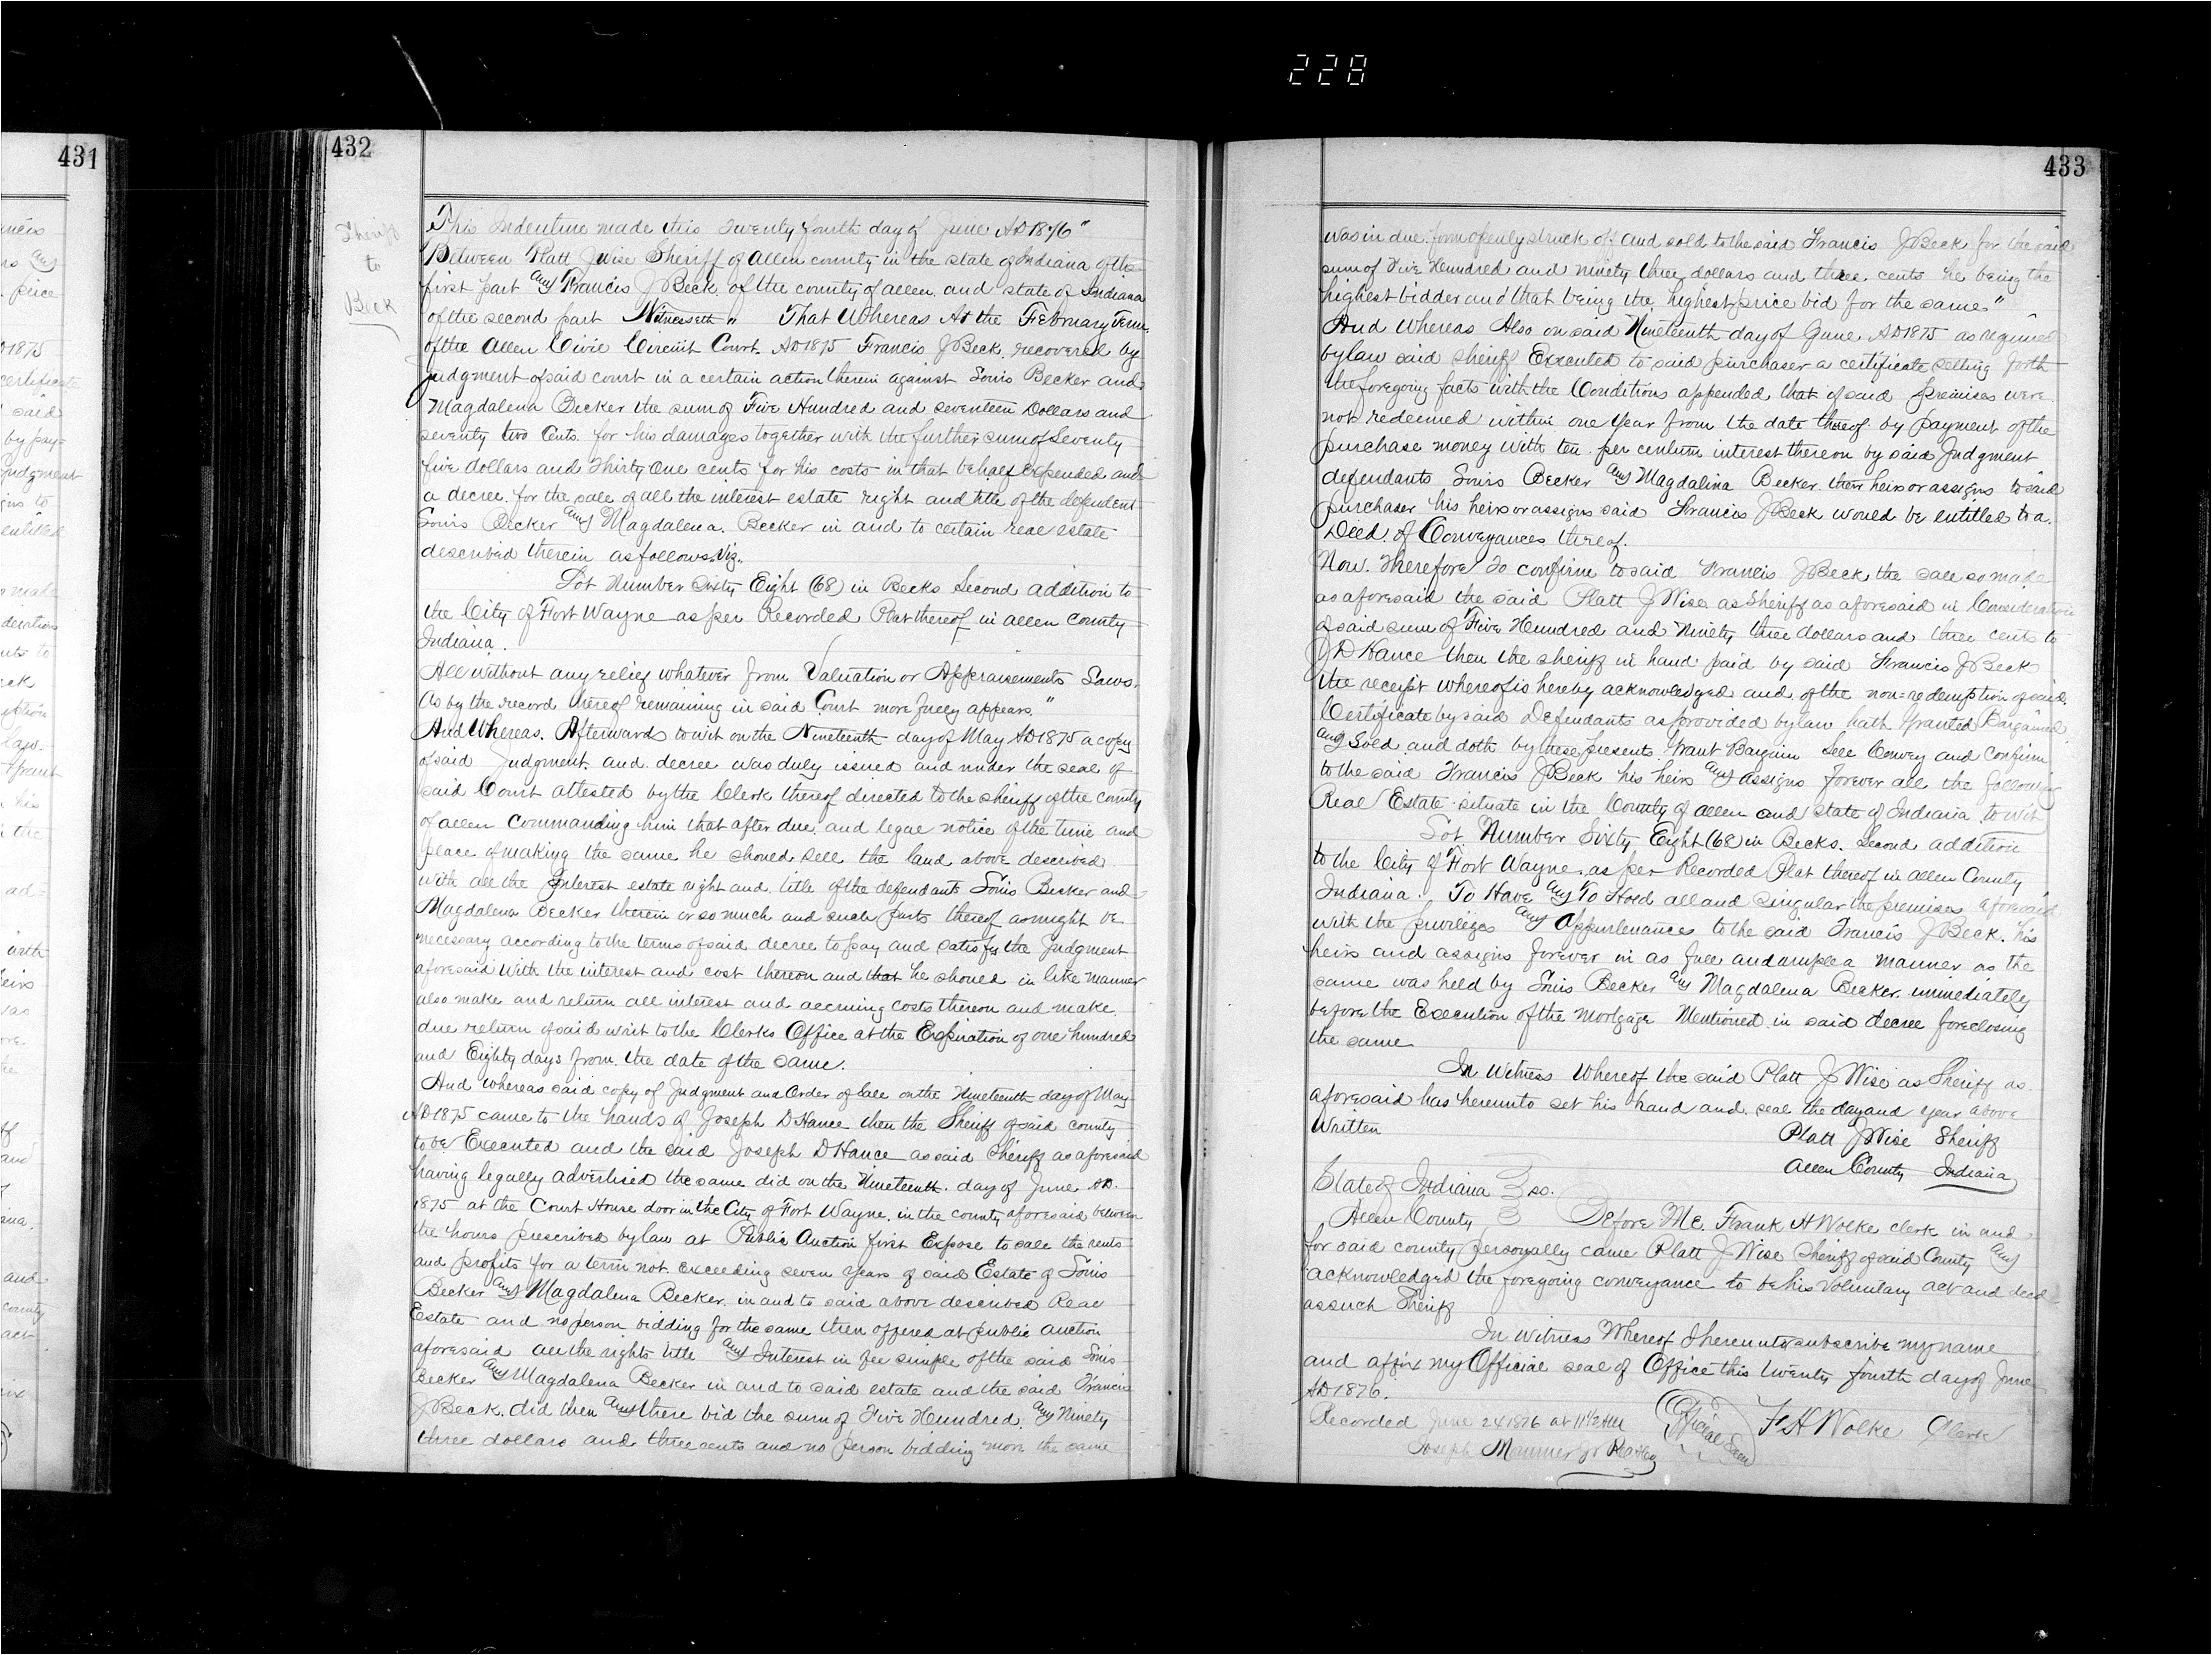 228
431
432
Sheriff
to
Beck
This Indenture made this Twenty fourth day of June AD 1876"
Between Platt J Wise Sheriff of Allen county in the state of Indiana of the
first part and Francis J Beck. of the county of allen. and state of Indiana
of the second part Witnesseth " That Whereas At the February Term
of the Allen Civil Circuit Court. AD 1875 Francis J Beck. recovered by
judgment of said court in a certain action therein against Louis Becker and
Magdalena Becker the sum of Five Hundred and seventeen Dollars and
seventy two Cents. for his damages together with the further sum of Seventy
five dollars and Thirty One cents for his costs in that behalf expended and
a decree. for the sale of all the interest estate right and title of the defendent
Louis Becker and Magdalena. Becker in and to certain real estate
described therein as follows. Viz.
Lot Number Sixty Eight (68) in Becks Second addition to
the City of Fort Wayne as per Recorded Plat thereof in allen County
Indiana.
All without any relief whatever from Valuation or Appraisements Laws.
As by the record thereof remaining in said Court more fully appears."
And Whereas. Afterwards to wit on the Nineteenth day of May AD 1875 a copy
of said Judgment. and. decree was duly issued and under the seal of
said Court attested by the Clerk thereof directed to the sheriff of the county
of allen commanding him that after due. and legal notice of the time and
place of making the same he should sell the land above described
with all the Interest estate right and title of the defendants Louis Becker and
Magdalena Becker therein or so much and such parts thereof as might be
necessary according to the terms of said decree to pay and satisfy the Judgment
aforesaid with the interest and cost thereon and that he should in like manner
also make and return all interest and accruing costs thereon and make
due return of said writ to the Clerks Office at the Expiration of one hundred
and Eighty days from the date of the same.
And whereas said copy of Judgment and Order of Sale on the Nineteenth day of May
AD 1875 came to the hands of Joseph D Hance then the Sheriff of said county
to be Executed and the said Joseph D Hance as said Sheriff as aforesaid
having legally advertised the same did on the Nineteenth. day of June AD.
1875 at the Court House door in the City of Fort Wayne. in the county aforesaid between
the hours prescribed by law at Public Auction first Expose to sale the rents
and profits for a term not exceeding seven years of said Estate of Louis
Becker and Magdalena Becker. in and to said above described Real
Estate and no person bidding for the same then offered at public auction
aforesaid all the right title and Interest in fee simple of the said Louis
Becker and Magdalena Becker in and to said estate and the said Francis
J Beck. did then and there bid the sum of Five Hundred and Ninety
three dollars and three cents and no person bidding more the same
433
was in due. form openly struck off and sold to the said Francis J Beck for the said
sum of Five Hundred and ninety three dollars and three cents he being the
highest bidder and that being the highest price bid for the same."
And Whereas Also on said Nineteenth day of June AD 1875 as required
by law said sheriff Executed to said purchaser a certificate setting forth
the foregoing facts with the Conditions appended that if said premises were
not redeemed within one Year from the date thereof by payment of the
purchase money with ten per centum interest thereon by said Judgment
defendants Louis Becker and Magdalina Becker. their heirs or assigns to said
purchaser his heirs or assigns said Francis J Beck would be entitled to a
Deed. of Conveyances thereof.
Now. Therefore To confirm to said Francis J Beck the sale so made
as aforesaid the said Platt J Wise as Sheriff as aforesaid in Consideration
of said sum of Five Hundred and Ninety three dollars and three cents to
J D Hance then the sheriff in hand paid by said Francis J Beck
the receipt whereof is hereby acknowledged and of the non=redemption of said
Certificate by said Defendants as provided by law hath Granted Bargained
and Sold and doth by these presents Grant Bargain Sell Convey and Confirm
to the said Francis J Beck his heirs and assigns forever all the following
Real Estate situate in the County of allen and State of Indiana to wit
Lot. Number Sixty Eight (68) in Becks. Second addition
to the City of Fort Wayne. as per Recorded Plat thereof in allen County
Indiana. To Have and To Hold all and singular the premises aforesaid
with the privileges and Appurtenances to the said Francis J Beck. his
heirs and assigns forever in as full and ample a manner as the
same was held by Louis Becker and Magdalena Becker. immediately
before the Execution of the Mortgage Mentioned in said decree foreclosing
the same
In Witness Whereof the said Platt J Wise as Sheriff as
aforesaid has hereunto set his hand and. seal the day and year above
Written
Platt J Wise Sheriff
Allen County Indiana
State of Indiana } ss.
Allen County } Before Me. Frank H Wolke clerk in and
for said county personally came Platt J Wise Sheriff of said County and
acknowledged the foregoing conveyance to be his voluntary act and deed
as such Sheriff
In Witness Whereof I hereunto subscribe my name
and affix my Official seal of Office this twenty fourth day of June
AD 1876.
F H Wolke Clerk
Official Seal
Recorded June 24 1876 at 11 1/2 AM
Joseph Mommer Jr